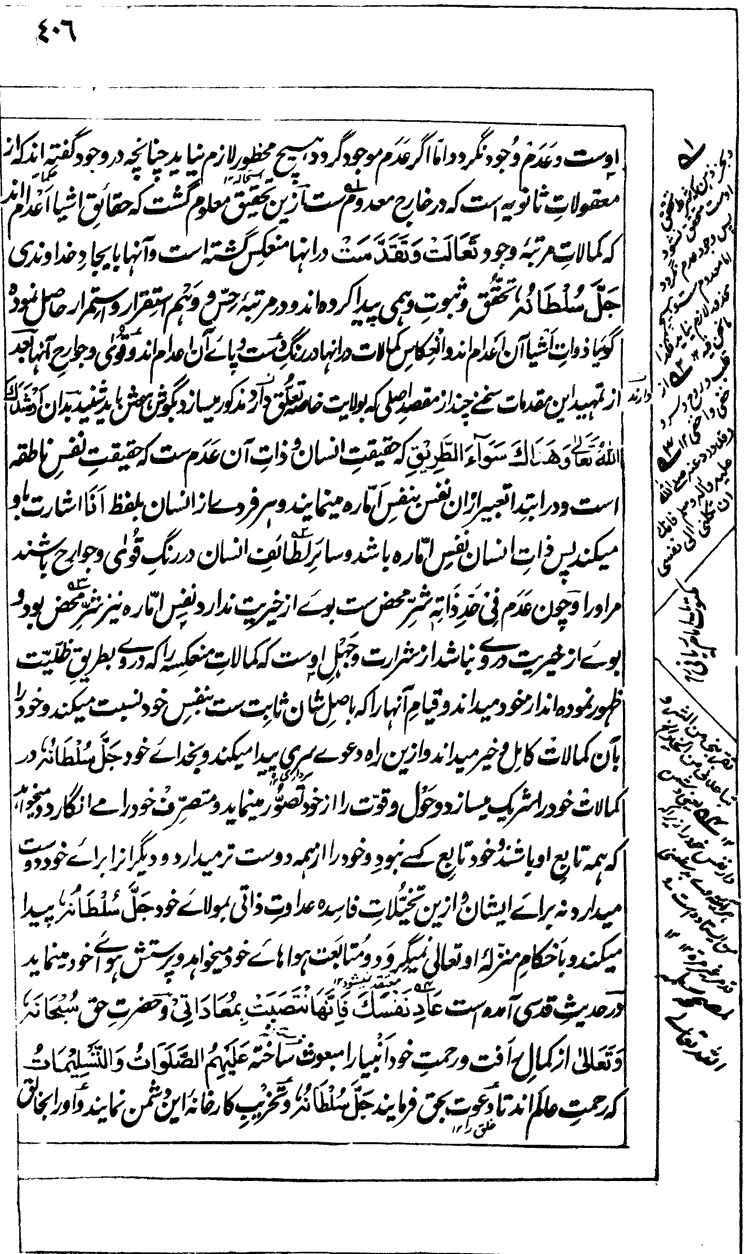 ٤٠٦
اوست و عدم وجود نگردد اما اگر عدم موجود گردد هیچ محظور لازم نیاید چنانچه در وجود گفته اند که از
معقولات ثانویه است که در خارج معدوم ست ازین تحقیق معلوم گشت که حقائق اشیا اعدام اند
که کمالات مرتبهٔ وجود تعالت و تقدمت در انها منعکس گشته است و آنها بایجاد خداوندی
جل سلطانه تحقق و ثبوت وهمی پیدا کرده اند و در مرتبهٔ حس و وهم استقرار و استمرار حاصل نموده
گویا ذوات اشیا آن اعدام اند و انعکاس کمالات در انها در رنگ دست و پاے آن اعدام اند و قوی و جوارح آنها بعد
از تمهید این مقدمات سخنے چند از مقصد اصلی که بولایت خاصه تعلق دارند مذکور میسازد بگوش هوش باید شنید بدان ارشدك
الله تعالی و هداك سواء الطریق که حقیقت انسان و ذات آن عدم ست که حقیقت نفس ناطقه
است و در ابتدا تعبیر ازان نفس بنفس اماره مینمایند و هر فردے از انسان بلفظ انا اشارت باو
میکند پس ذات انسان نفس اماره باشد و سائر لطائف انسان در رنگ قوی و جوارح باشند
مراو را و چون عدم فی حد ذاته شر محض ست بوے از خیریت ندارد نفس اماره نیز شر محض بود و
بوے از خیریت دروے نباشد از شرارت و جهل اوست که کمالات منعکسه را که دروے بطریق ظلیت
ظهور نموده اند از خود میداند و قیام آنها را که باصل شان ثابت ست بنفس خود نسبت میکند و خود را
بآن کمالات کامل و خیر میداند و ازین راه دعوے سری پیدا میکند و بخداے خود جل سلطانه در
کمالات خود را شریک میسازد و حول و قوت را از خود تصور مینماید و متصرف خود را مے انگارد و میخواهد
که همه تابع او باشند و خود تابع کسے نبود و خود را از همه دوست تر میدارد و دیگرانرا براے خود دوست
میدارد نه براے ایشان و ازین تخیلات فاسده عداوت ذاتی بمولاے خود جل سلطانه پیدا
میکند و باحکام منزلهٔ او تعالی نمیگرود و متابعت هواهاے خود میخواهد و پرستش هواے خود مینماید
در حدیث قدسی آمده است عاد نفسك فانها انتصبت بمعاداتی و حضرت حق سبحانه
و تعالی از کمال رأفت و رحمت خود انبیا را مبعوث ساخته علیهم الصلوات و التسلیمات
که رحمت عالم اند تا دعوت بحق فرمایند جل سلطانه و تخریب کارخانهٔ این دشمن نمایند و او را بخالق
خلق را ۱۲